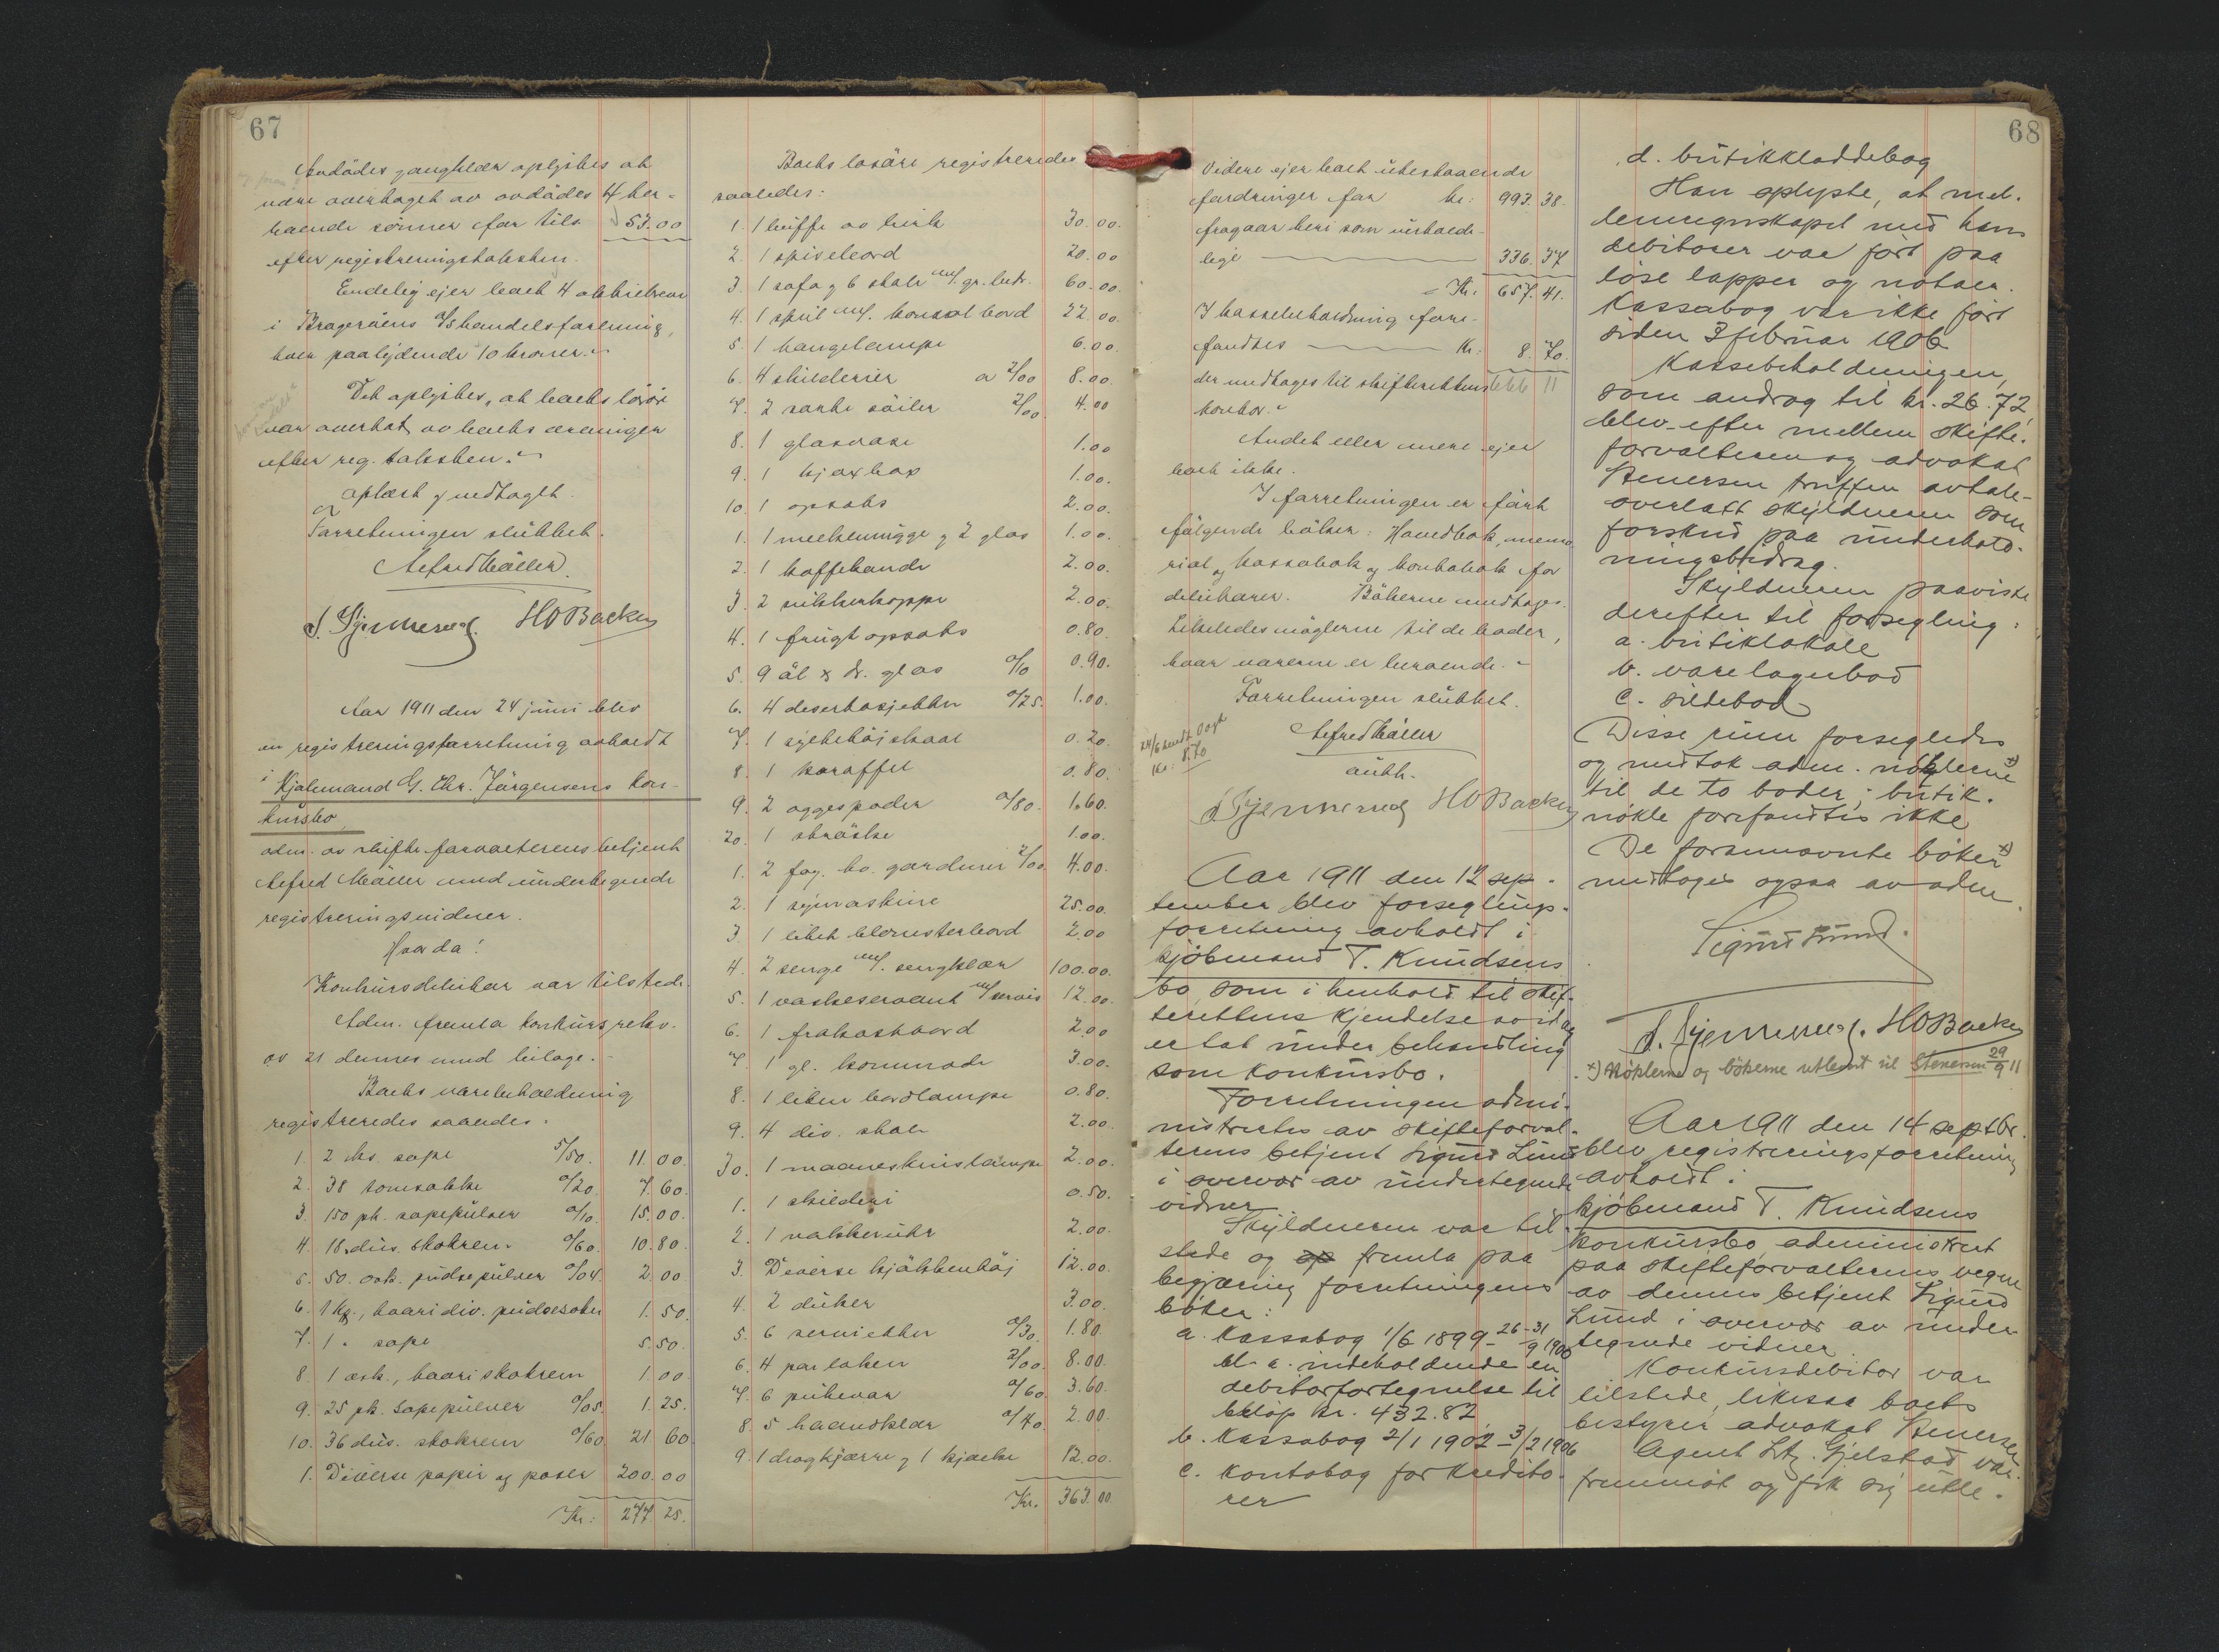 67
Avdödes gangklær oplystes at
være overtaget av avdödes 4 her-
værende sönner for tils. 53.00
efter registreringstaksten.
Endelig ejer boet 4 aktiebreve
i Brageröens A/S handelsforening,
hver paalydende 10 kroner.
Det oplystes, at boets lösöre
var overtat av boets arvinger
efter reg. taksten.
Oplæst og vedtaget.
Forretningen sluttet.
Alfred Møller
HOBacker
Aar 1911 den 24 juni blev
en registreringsforretning avholdt
i Kjøbmand G. Chr. Jörgensens kon-
kursbo,
adm. av skifteforvalterens betjent
Alfred Møller med undertegnede
registreringsvidner.
Hvorda!
Konkursdebitor var tilstede.
Adm. fremla konkursrekv.
av 21 dennes med bilage.
Boets varebeholdning
registreredes saaledes:
1. 2 ks. sæpe 5/50. 11.00.
2. 38 tomsække 0/20. 7.60.
3. 150 pk. sæpepulver 0/10. 15.00.
4. 18 dus. skokrem 0/60. 10.80.
5. 50 æsk. pudsepulver 0/04. 2.00
6. 1 kg., hvori div. pudsesaker 1.50.
7. 1 " sæpe 5.50.
8. 1 æsk., hvori skokrem 1.00.
9. 25 pk. sæpepulver 0/05. 1.25.
10. 36 dus. skokrem 0/60. 21.60
1. Diverse papir og poser 200.00
Kr.: 277.25.
Boets løsöre registreredes
saaledes:
1. 1 buffe av birk 30.00.
2. 1 spisebord 20.00
3. 1 sofa og 6 stole m/. gr. betr. 60.00.
4. 1 speil m/. konsol bord 22.00.
5. 1 hængelampe 6.00.
6. 4 skilderier a 2/00 8.00.
7. 2 sorte söiler 2/00. 4.00
8. 1 glasvase 1.00
9. 1 1.00.
10. 1 opsats 2.00.
1. 1 melkemugge og 2 glas 1.00.
2. 1 kaffekande 2.00.
3. 2 sukkerkopper 2.00.
4. 1 frugtopsats 0.80.
5. 9 öl & dr. glas 0/10 0.90.
6. 4 desertasjetter 0/25. 1.00.
7. 1 syltetöiskaal 0.20.
8. 1 karaffel 0.80.
9. 2 0/80. 1.60.
20. 1 1.00.
1. 2 fag. bo. gardiner 2/00 4.00.
2. 1 symaskine 25.00.
3. 1 litet blomsterbord 2.00
4. 2 senge m/. sengklær 100.00.
5. 1 vaskeservant m/ servis 12.00.
6. 1 frokostbord 2.00
7. 1 gl. kommode 3.00.
8. 1 liten bordlampe 0.80.
9. 4 div. stole 2.00.
30. 1 maaneskinslampe 2.00.
1. 1 skilderi 0.50.
2. 1 vækkeruhr 2.00.
3. Diverse kjökkentöj 12.00.
4. 2 duker 3.00.
5. 6 servietter 0/30. 1.80.
6. 4 par laken 2/00. 8.00.
7. 6 putevar 0/60. 3.60.
8. 5 haandklær 0/40. 2.00.
9. 1 dragkjærre og 1 kjælke 12.00.
Kr. 363.00
68
Videre ejer boet utestaaende
fordringer for kr: 993.38.
fragaar heri som uerholde-
lige 336.37
= Kr. 657.41.
I kassebeholdning fore-
fandtes Kr: 8.70.
der medtages til skifterettens 666 11
kontor.
Andet eller mere ejer
boet ikke.
I forretningen er fört
fölgende böker: Hovedbok, memo
rial, kassabok og kontobok for
debitorer. Bökerne medtages.
Likeledes nöglerne til de boder,
hvor varerne er beroende.
Forretningen sluttet.
Alfred Møller
auth.
24/6
Kr: 8.70
HOBacker
Aar 1911 den 12 sep-
tember blev forseglings-
forretning avholdt i
kjöbmand T. Knudsens
bo, som i henhold til skif-
terettens kjendelse av idag
er tat under behandling
som konkursbo.
Forretningen admi-
nistrertes av skifteforval-
terens betjent Sigurd Lund
i overvær av undertegnede
vidner.
Skyldneren var til-
stede og fremla paa
begjæring forretningens
böker:
a. Kassabog 1/6 1899 - 26-31
9 1900
bl. a. indeholdende en
debitorfortegnelse til
belöp kr. 432.82
b. Kassabog 2/1 1902 - 3/2 1906
c. Kontobog for kredito-
rer
d. butikkladdebog
Han oplyste, at mel-
lemregnskapet med hans
debitorer var fört paa
löse lapper og notaer.
Kassabog var ikke fört
siden 3 februar 1906
Kassebeholdningen,
som androg til kr. 26.72,
blev efter mellem skifte-
forvalteren og advokat
Stenersen truffen avtale
overlatt skyldneren som
forskud paa underhold-
ningsbidrag.
Skyldneren paaviste
derefter til forsegling:
a. butiklokale
b. varelagerbod
c. sildebod
Disse rum forsegledes
og medtok adm. nöklerne x)
til de to boder; butik-
nökle forefandtes ikke
De forannævnte böker x)
medtoges ogsaa av adm.
Sigurd Lund.
HOBacker
x) Nöklerne og bökerne utlevert til Stenersen 29/9 11
Aar 1911 den 14 septbr.
blev registreringsforretning
avholdt i
kjöbmand T. Knudsens
konkursbo, administrert
paa skifteforvalterens vegne
av dennes betjent Sigurd
Lund i overvær av under-
tegnede vidner.
Konkursdebitor var
tilstede, likesaa boets
bestyrer advokat Stenersen
Agent Gjelstad var
fremmöt og fik sig utle-